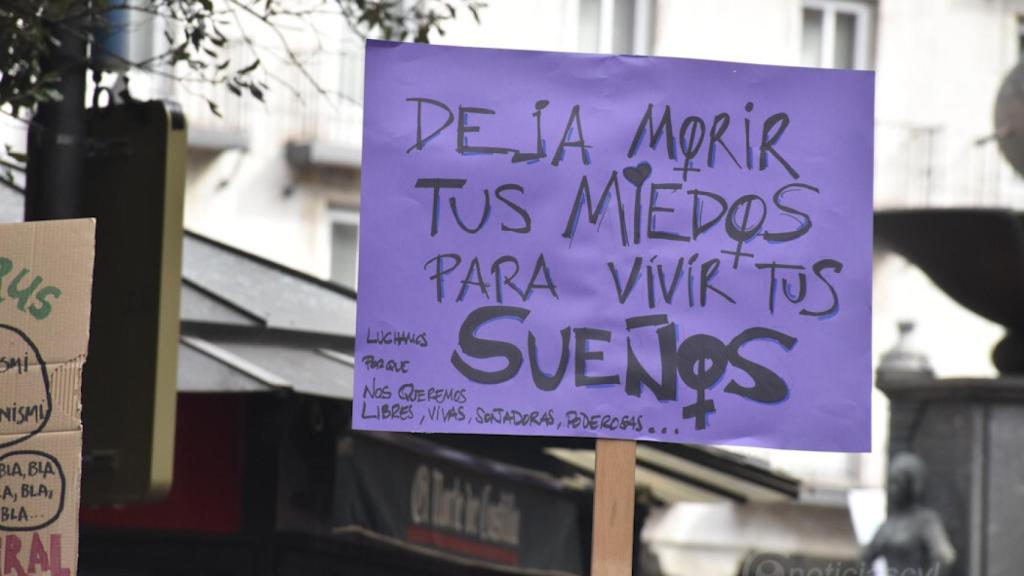 DEJA MORIR
TUS MIEDOS
PARA VÍVÍR TUS
SUEÑOS
LUCHAMOS
PORQUE
NOS QUEREMOS
LIBRES, VIVAS, SOÑADORAS, PODEROSAS...
RUS
ISMI
NISMI
BLA, BLA
LA, BLA,
BLA...
RAL
El Norte de Castilla
noticiascyl